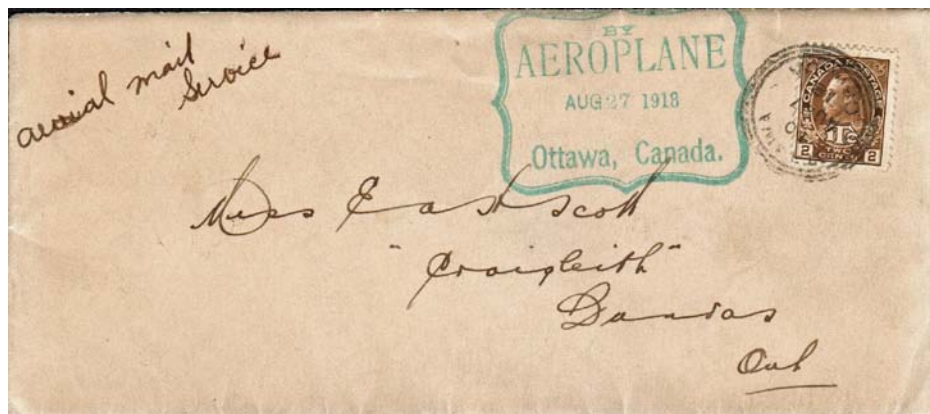 aerial mail
Service
BY
AEROPLANE
AUG 27 1918
Ottawa, Canada.
CANADA POSTAGE
1Tc
2 TWO CENTS 2
Miss Scott
"Craigleith"
Dundas
Ont